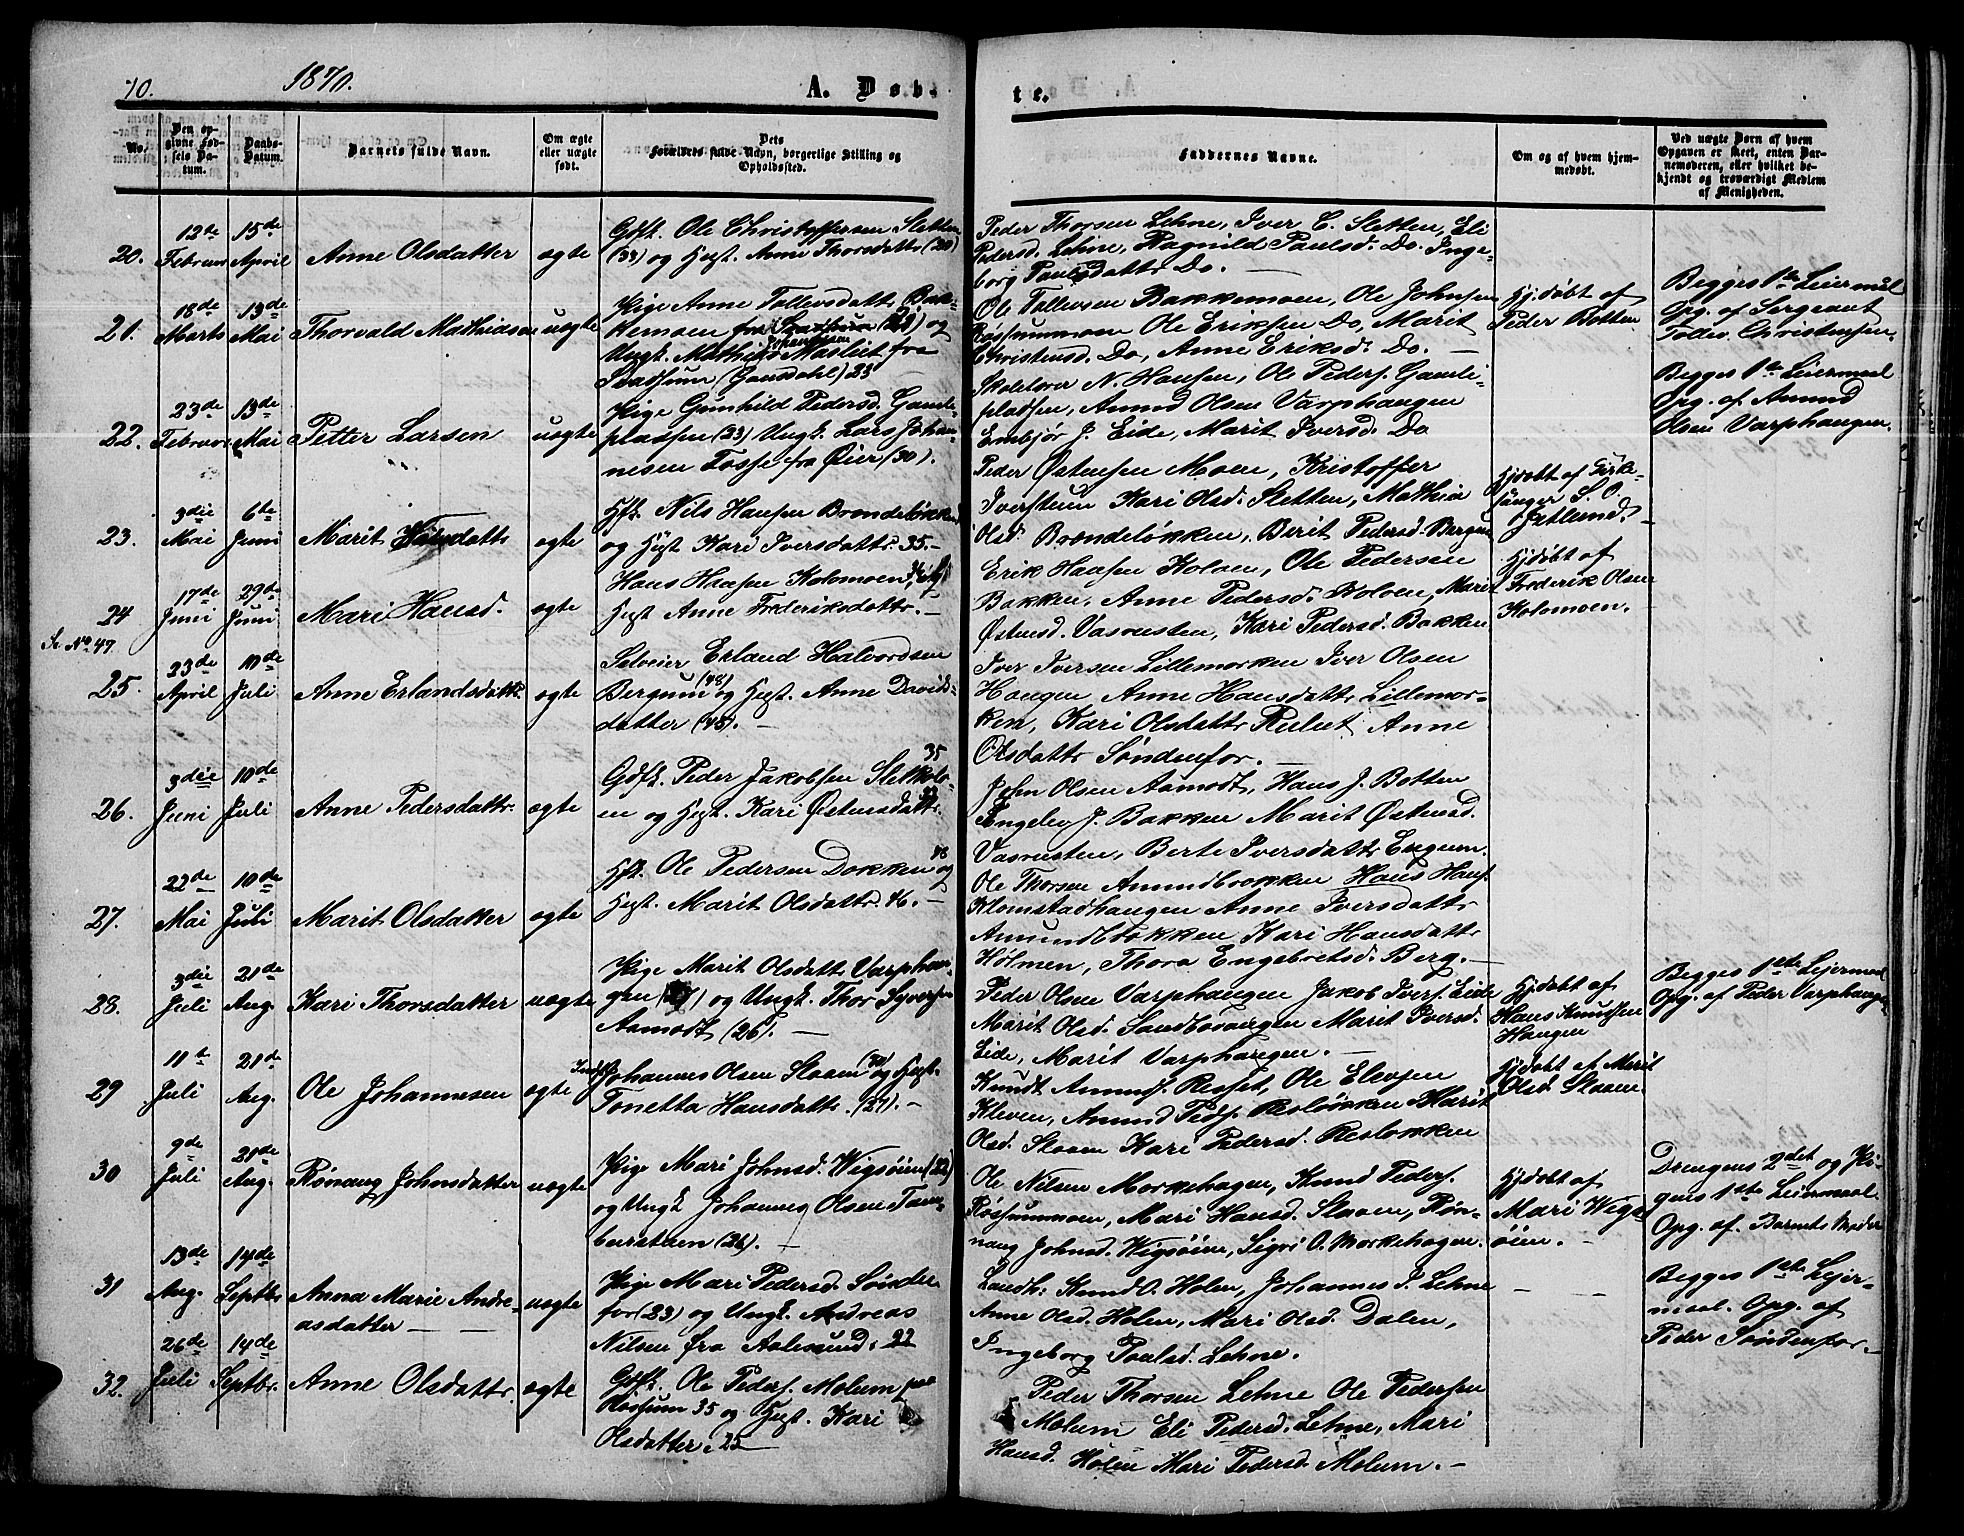 70.
1870.
A. Døbte.
No.
Den opgivne Fødsels Datum.
Daabs-Datum.
Barnets fulde Navn.
Om ægte eller uægte født.
Dets Forældres fulde Navn, borgerlige Stilling og Opholdssted.
Faddernes Navne.
Om og af hvem hjemmedøbt.
Ved uægte Børn af hvem Opgaven er skeet, enten Barnemoderen, eller hvilket bekjendt og troværdigt Medlem af Menigheden.
20.
12te Februar
15de April
Anne Olsdatter
ægte
Gdfk. Ole Christoffersen Sletten
(33) og Hust. Anne Thorsdattr (20)
Peder Thorsen Lehne, Iver C. Sletten, Eli
Pedersd. Lehne, Ragnild Paulsd. Do. Inge-
borg Paulsdattr Do. —
21.
18de Marts
13de Mai
Thorvald Mathiasen
uægte
Pige Anne Tollevsdattr Bak-
kemoen fra og
Ungk. Mathias fra
(Gausdahl) 23
Ole Tollevsen Bakkemoen, Ole Johnsen
Røssummoen Ole Eriksen Do, Marit
Christensd. Do, Anne Eriksd. Do. —
Hjdøbt af
Peder Botten
Begges 1te Leiermaal
Opg. af Sergeant
Christensen.
22.
23de Februar
13de Mai
Petter Larsen
uægte
Pige Gunhild Pedersd. Gamle-
pladsen (23) Ungk. Lars Johan-
nesen Tosse fra Øier (30).
Skolelærer N. Hansen, Ole Peders. Gamle-
pladsen, Amund Olsen Varphaugen
Embjør J. Eide, Marit Iversd. Do
Begges 1te Leiermaal
Opg. af Amund
Olsen Varphaugen.
23.
3die Mai
6te Juni
Marit
ægte
Hfk. Nils Hansen Brændeløkken
og Hust Kari Iversdattr. 35. —
Peder Østensen Moen, Kristoffer
Iverstuen Kari Olsd. Sletten, Mathia
Olsd. Brændeløkken, Berit Pedersd. Bergum
Hjdøbt af Kirke-
sanger S. O.
Jetlund. —
24
17de Juni
29de Juni
Mari Hansd.
ægte
Hans Hansen Kolomoen
Hust Anne Frederiksdattr. —
Erik Hansen Kolven, Ole Pedersen
Bakken, Anne Pedersd. Kolven, Marit
Østensd. Vasrusten, Kari Pedersd. Bakken
Hjdøbt af
Frederik Olsen
Kolomoen.
Se No. 49
25.
23de April
10de Juli
Anne Erlandsdattr
ægte
Selveier Erland Halvordsen
Bergum (48) og Hust. Anne Davids-
datter (45). —
Iver Iversen Lillemorken Iver Olsen
Haugen Anne Hansdattr Lillemor-
ken, Kari Olsdattr Rulset Anne
Olsdattr Søndenfor. —
26.
3die Juni
10de Juli
Anne Pedersdattr.
ægte
Gdfk. Peder Jakobsen Sletkolo- 35
en og Hust. Kari Østensdattr.
John Olsen Aamodt, Hans J. Botten
Engelev J. Bakken Marit Østensd.
Vasrusten, Berte Iversdattr Engum.
27.
22de Mai
10de Juli
Marit Olsdatter
ægte
Hfk. Ole Pedersen Dokken 48 og
Hust. Marit Olsdattr. 46. —
Ole Thorsen Amundbrokken Hans Hans.
Klomstadhaugen Anne Iversdattr
Amundbrokken Kari Hansdattr
Holmen, Thora Engebretsd. Berg. —
28.
3die Juli
21de Aug.
Kari Thorsdatter
uægte
Pige Marit Olsdattr Varphau-
gen og Ungk. Thor Syversen
Aamodt (26). —
Peder Olsen Varphaugen Jakob Ivers. Eide
Marit Olsd. Sandboraugen Marit Iversd.
Eide, Marit Varphaugen. —
Hjdøbt af
Hans Knudsen
Haugen
Begges 1ste Leiermaal
Opg. af Peder Varphaugen
29
11te Juli
21de Aug.
Ole Johannesen
ægte
Inds. Johannes Olsen Slaaen (30) og Hust.
Tonetta Hansdattr. (27). —
Knudt Amunds. Resset, Ole Elevsen
Kleven, Amund Peds. Resløkken Marit
Olsd. Slaaen Kari Pedersd. Resløkken
Hjdøbt af Marit
Olsd Slaaen.
30
9de Juli
21de Aug.
Rønaug Johnsdatter
uægte
Pige Mari Johnsd. Wigsøien (22)
og Ungk Johannes Olsen
(26). —
Ole Nilsen Morkehagen, Knud Peders.
Røssummoen, Mari Hansd. Slaaen, Røn-
naug Johnsd. Wigsøien, Sigri O. Morkehagen.
Hjdøbt af
Mari Wigs-
øien. —
Drengens 2det og Pi-
gens 1ste Leiermaal.
Opg. af. Barnets Moder
31
13de Aug.
14de Septbr
Anna Marie Andre-
asdatter —
uægte
Pige Mari Pedersd. Sønden-
for (23) og Ungk. Andreas
Nilsen fra Aalesund. 22
Landh. Knud O. Holen, Johannes P. Lehne
Anne Olsd. Holen, Mari Olsd. Dalen,
Ingeborg Paulsd. Lehne.
— —
Begges 1ste Leier-
maal. Opg. af
Peder Søndenfor. —
32.
26de Juli
14de Septbr.
Anne Olsdattr.
ægte
Gdfk. Ole Peders. Molum paa
Røssum 35 og Hust. Kari
Olsdatter. 25
Peder Thorsen Lehne Ole Pedersen
Molum Eli Pedersd. Lehne, Mari
Hansd. Holen Mari Pedersd. Molum. —